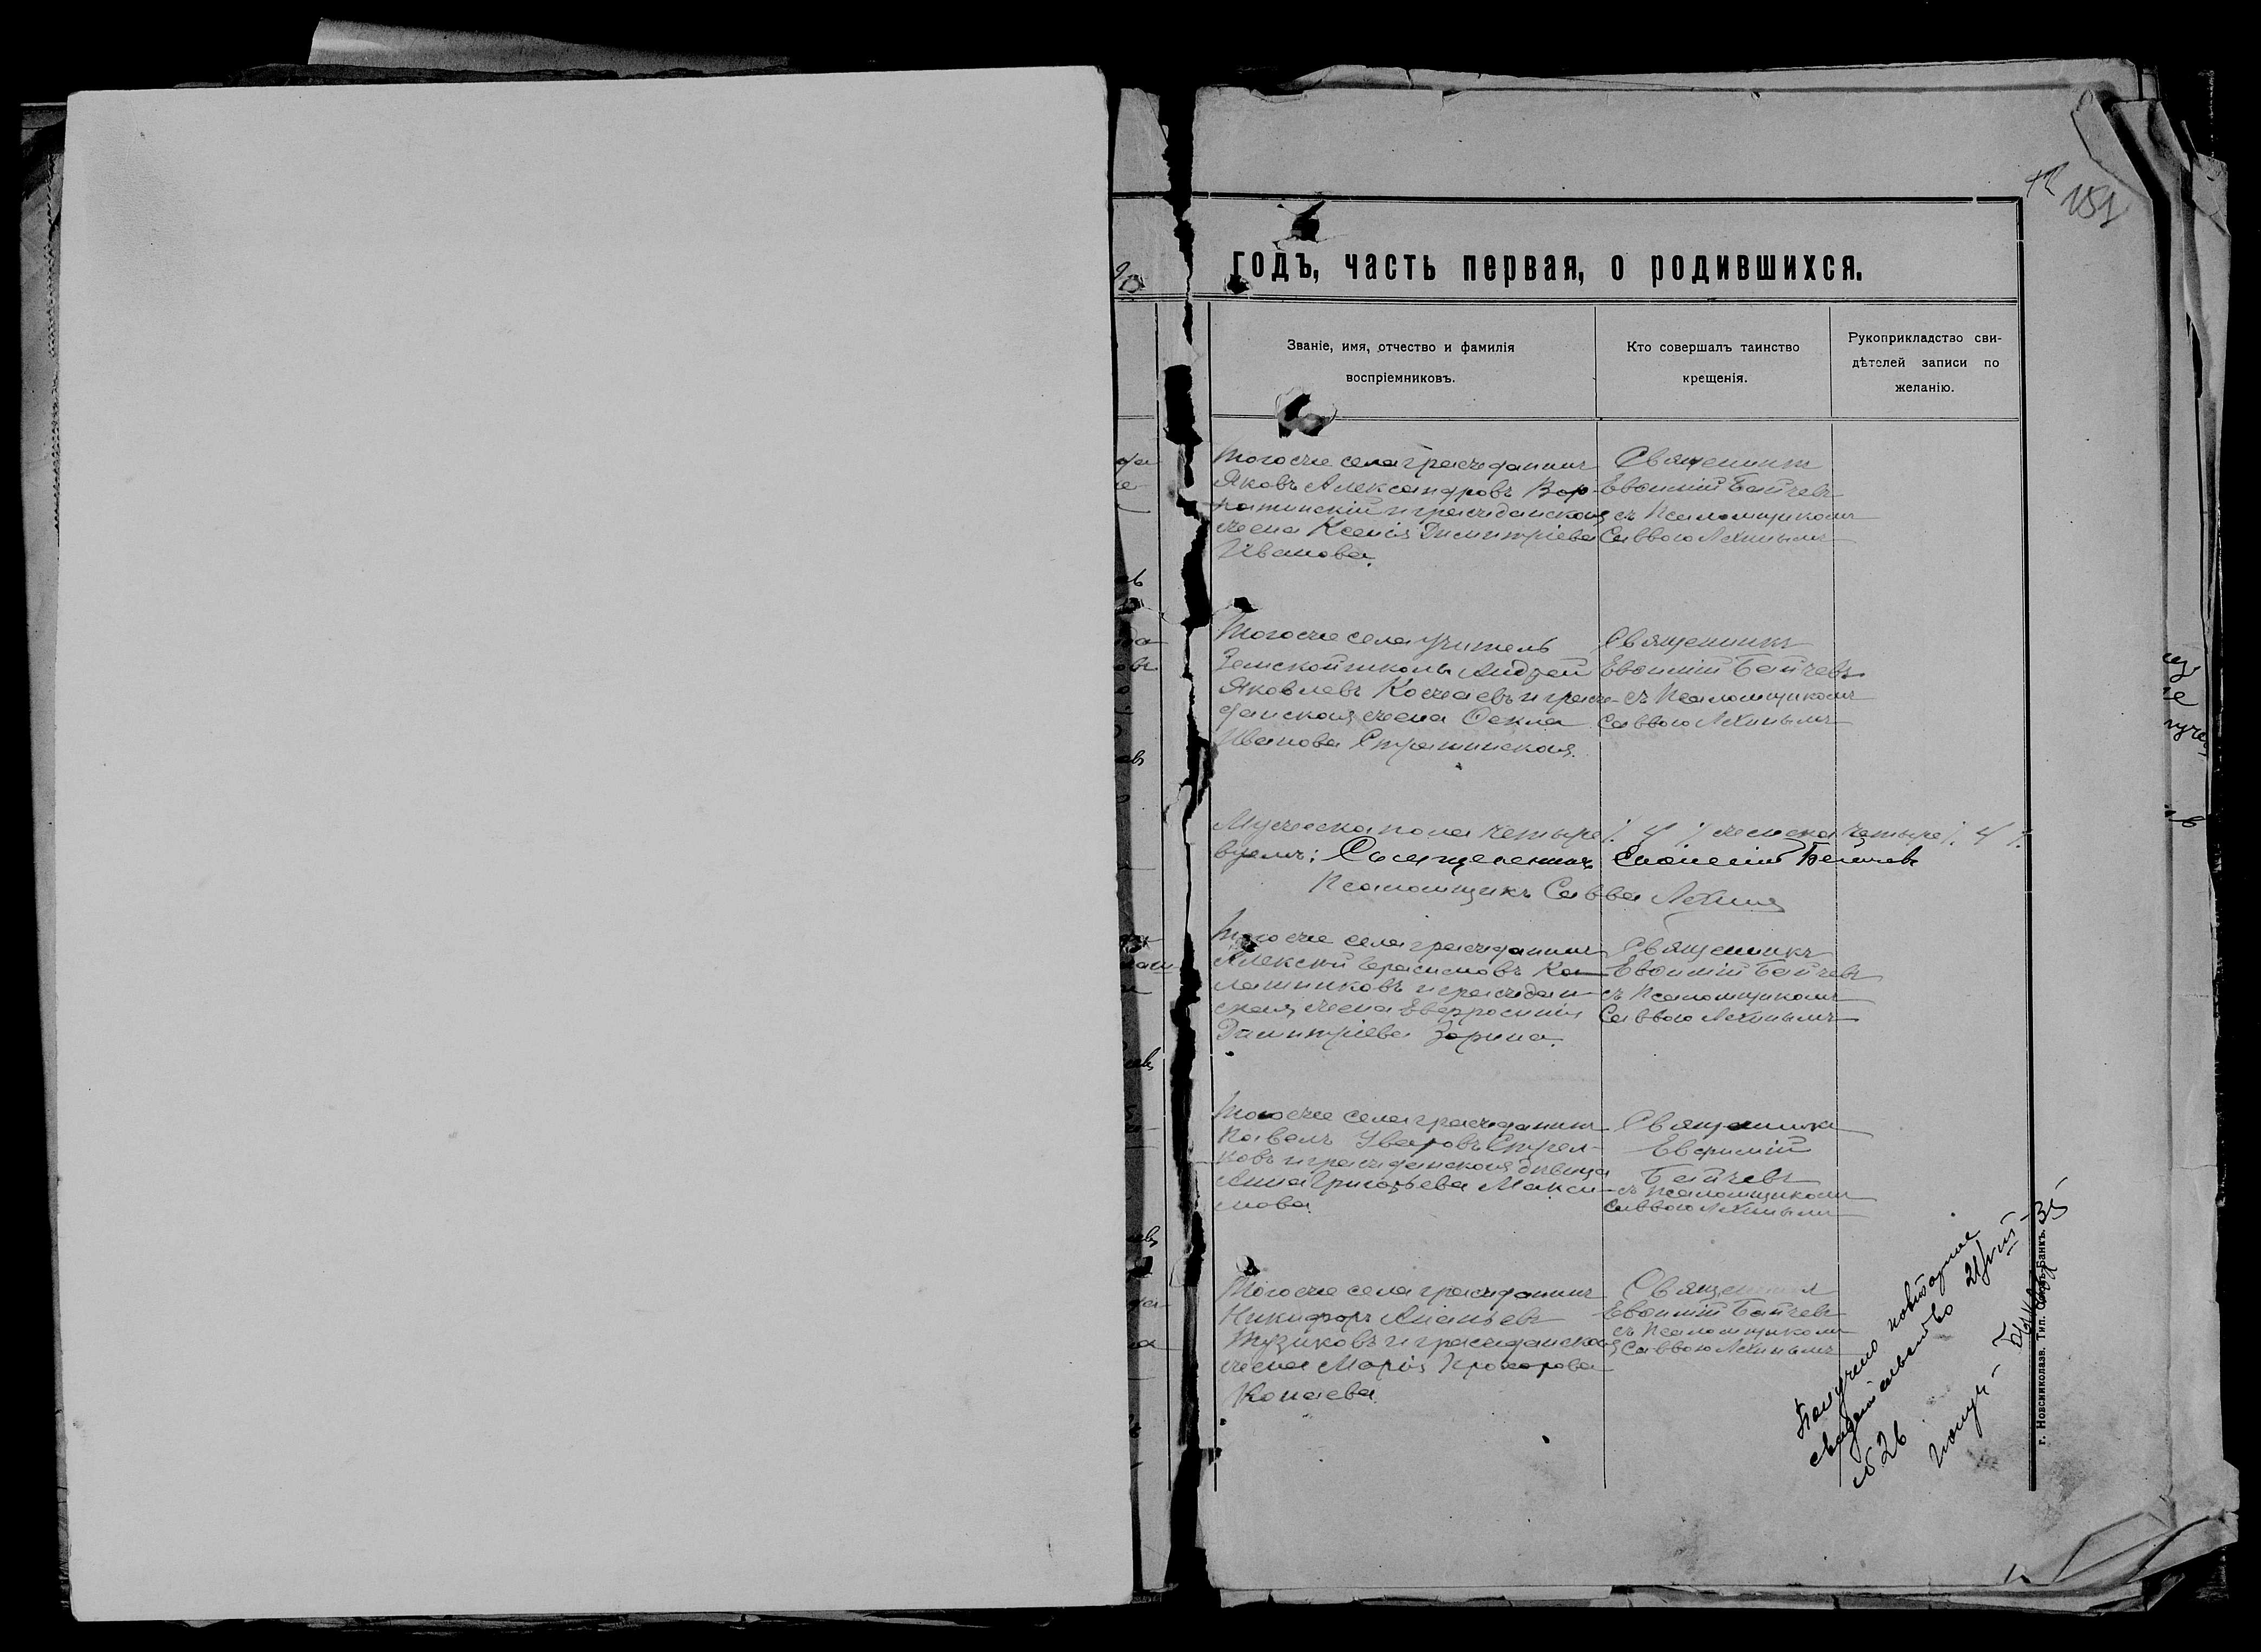 151
годъ, часть первая, о родившихся.
Званіе, имя, отчество и фамилія
воспріемниковъ.
Кто совершалъ таинство
крещенія.
Рукоприкладство сви-
дѣтелей записи по
желанію.
Тогоже села гражданинъ
Яковъ Александровъ Вор-
и гражданская
жена Ксенія Димитріева
Иванова.
Священникъ
Евѳимій Байчевъ
съ Псаломщикомъ
Саввою Лехинымъ
Тогоже села учитель
Земской школы Андрей
Яковлевъ Косчаевъ и граж-
данская жена Ѳекла
Иванова Стратинская.
Священникъ
Евѳимій Байчевъ
съ Псаломщикомъ
Саввою Лехинымъ
Мужеска пола четыре /. 4 ./ женска четыре /. 4 /.
Священникъ Евѳимій Байчевъ
Псаломщикъ Савва Лехинъ
Тогоже села гражданинъ
Алексѣй Герасимовъ Ка-
лашниковъ и граждан-
ская жена Евфросинія
Димитріева Зорина.
Священникъ
Евѳимій Байчевъ
съ Псаломщикомъ
Саввою Лехинымъ
Тогоже села гражданинъ
Павелъ Уваровъ Стрел-
ковъ и гражданская дѣвица
Анна Григорьева Макси-
мова.
Священникъ
Евфимій
Байчевъ
съ Псаломщикомъ
Саввою Лехинымъ
Тогоже села гражданинъ
Никифоръ Ананьевъ
Тузиковъ и гражданская
жена Марія Прохорова
Копаева.
Священникъ
Евѳимій Байчевъ
съ Псаломщикомъ
Саввою Лехинымъ
Получено повторное
свидетельство
г. Новониколаевъ. Тип. Банкъ.